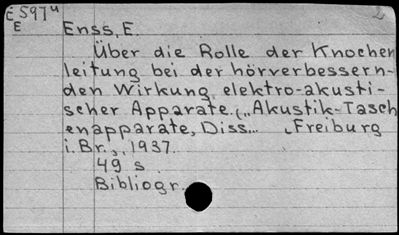 E 597u 2
E
Enss, E.
Über die Rolle der Knochen
leitung bei der hörverbessern-
den Wirkung elektro-akusti-
scher Apparate. („Akustik-Tasch
enapparate, Diss... Freiburg
i. Br., 1937.
49 s.
Bibliogr.